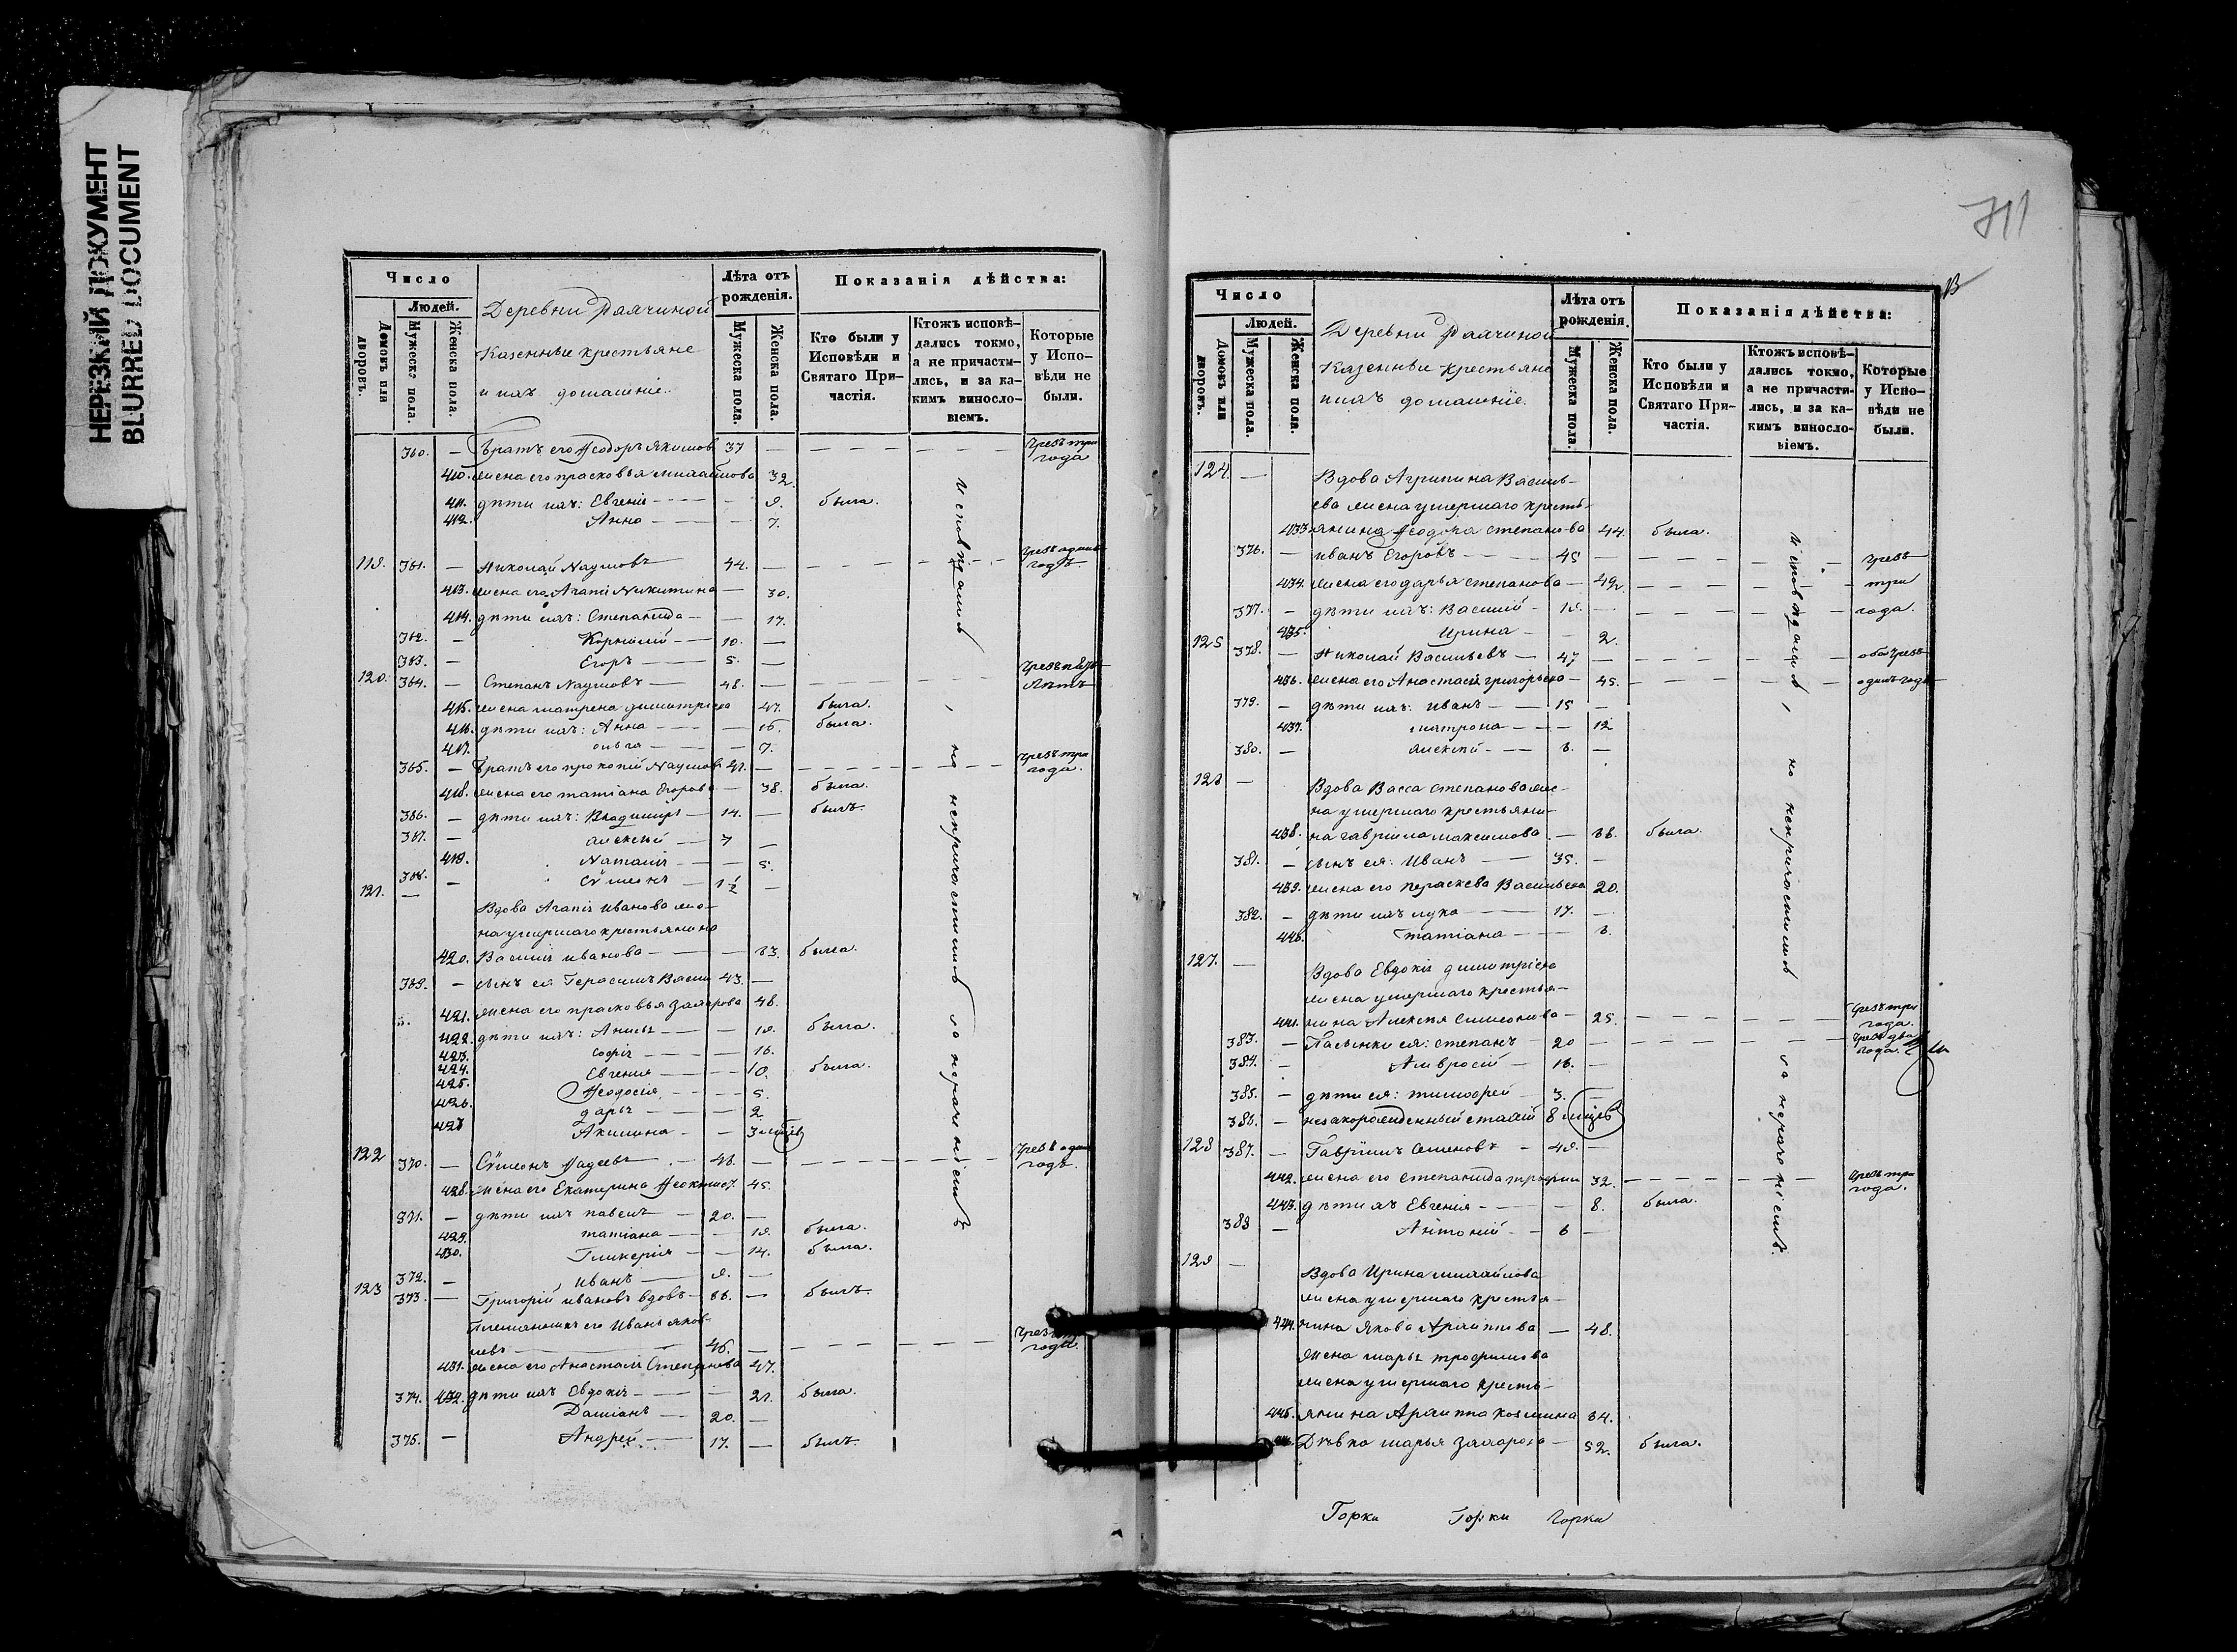 НЕРЕЗКИЙ ДОКУМЕНТ
BLURRED DOCUMENT
Число
Людей.
Домовъ или дворовъ.
Мужеска пола.
Женска пола.
Деревни
Казенные крестьяне
и ихъ домашніе.
Лѣта отъ рожденія.
Мужеска пола.
Женска пола.
Показанія дѣйства:
Кто были у Исповѣди и Святаго Причастія.
Ктожъ исповѣдались токмо, а не причастились, и за какимъ винословіемъ.
Которые у Исповѣди не были.
360. — Братъ его Ѳеодоръ Якимовъ 37 — чрезъ три года
410. жена его прасковья михайлова 32.
411. дѣти ихъ: Евгенія — 9. была.
412. Анна — 7.
119. 361. — Николай Наумовъ 44. — чрезъ одинъ годъ.
413. жена его Агапія Никитина — 30.
414. дѣти ихъ: Степанида — 17.
362. — Корнилій — 10. —
363. — Егоръ — 5. —
120. 364. — Степанъ Наумовъ — 48. — чрезъ пять лѣтъ
415. жена матрена димитріева 47. была.
416. дѣти ихъ: Анна — 16. была.
417. ольга — 7.
365. — Братъ его прокопій Наумовъ 41. — чрезъ три года.
418. жена его татіана Егорова — 38. была.
366. — дѣти ихъ: Владиміръ — 14. — былъ.
367. — алексѣй — 7 —
419. Наталія — 5.
368. — Сѵмеонъ — 1 1/2 —
121. — Вдова Агапія иванова же-
на умершаго крестьянина
420. Василія иванова — 63. была.
369. — сынъ ея Герасимъ Васил 43. —
421. жена его прасковья захарова 46.
422. дѣти ихъ: Анисья — 19. была.
423. софія — 16.
424. Евгенія — 10. была.
425. Ѳеодосія — 5.
426. дарья — 2
427 Акилина — 3 мѣсяц
122 370. — Сѵмеонъ Фадеевъ — 46. — чрезъ одинъ годъ.
428. жена его Екатерина Ѳеоктист. 45.
371. — дѣти ихъ павелъ — 20. —
429. татіана — 19. была.
430. Гликерія — 14. была.
372. — иванъ — 9. —
123 373. — Григорій ивановъ вдовъ — 66. — былъ.
Племянникъ его Иванъ яков-
левъ — 46. — чрезъ года.
431. жена его Анастасія Степанова 47.
374. 432. дѣти ихъ Евдокія — 21. была.
Даміанъ — 20. —
375. — Андрей — 17. — былъ.
исповѣдались, но непричастились за нерачен­іемъ
711
Число
Людей.
Домовъ или дворовъ.
Мужеска пола.
Женска пола.
Деревни
Казенные крестьяне
и ихъ домашніе.
Лѣта отъ рожденія.
Мужеска пола.
Женска пола.
Показанія дѣйства:
Кто были у Исповѣди и Святаго Причастія.
Ктожъ исповѣдались токмо, а не причастились, и за какимъ винословіемъ.
Которые у Исповѣди не были.
124. — Вдова Агрипина Василь-
ева жена умершаго кресть-
433. янина Ѳеодора степанова 44. была.
376. — иванъ Егоровъ — 45 — чрезъ
434. жена его дарья степанова — 42. три
377. — дѣти ихъ: Василій — 19. — года.
435. Ирина — 2.
125 378. — Николай Васильевъ — 47 — оба чрезъ
436. жена его Анастасія григорьева — 45. одинъ годъ
379. — дѣти ихъ: иванъ — 15 —
437. матрона — 12
380. — алексѣй — 6. —
126 — Вдова Васса степанова же-
на умершаго крестьяни-
438. на гавріила максимова — 66. была.
381. — сынъ ея: Иванъ — 35. —
439. жена его параскева Васильева 20.
382. — дѣти ихъ лука — 17. —
440. татіана — 6.
127. — Вдова Евдокія димитріева
жена умершаго крестья-
441. нина Алексѣя симеонова — 25. чрезъ три года.
383. — Пасынки ея: степанъ — 20 — чрезъ два года.
384. — Амвросій — 16. —
385. — дѣти ея: тимофей — 3. —
386. — незаконорожденный 8 мѣсяц
128 387. — Гавріилъ Семеновъ — 49. —
442. жена его степанида 32. чрезъ три года.
443. дѣти ихъ Евгенія — 8. была.
388 — Антоній — 6 —
129 — Вдова Ирина михайлова
жена умершаго крестья-
444. нина Якова Архиппова — 48.
жена марья трофимова
жена умершаго кресть-
445. янина Архиппа козмина 64.
Дѣвка марья захарова — 52. была.
исповѣдались, но непричастились за нераченіемъ.
Горки Горки Горки